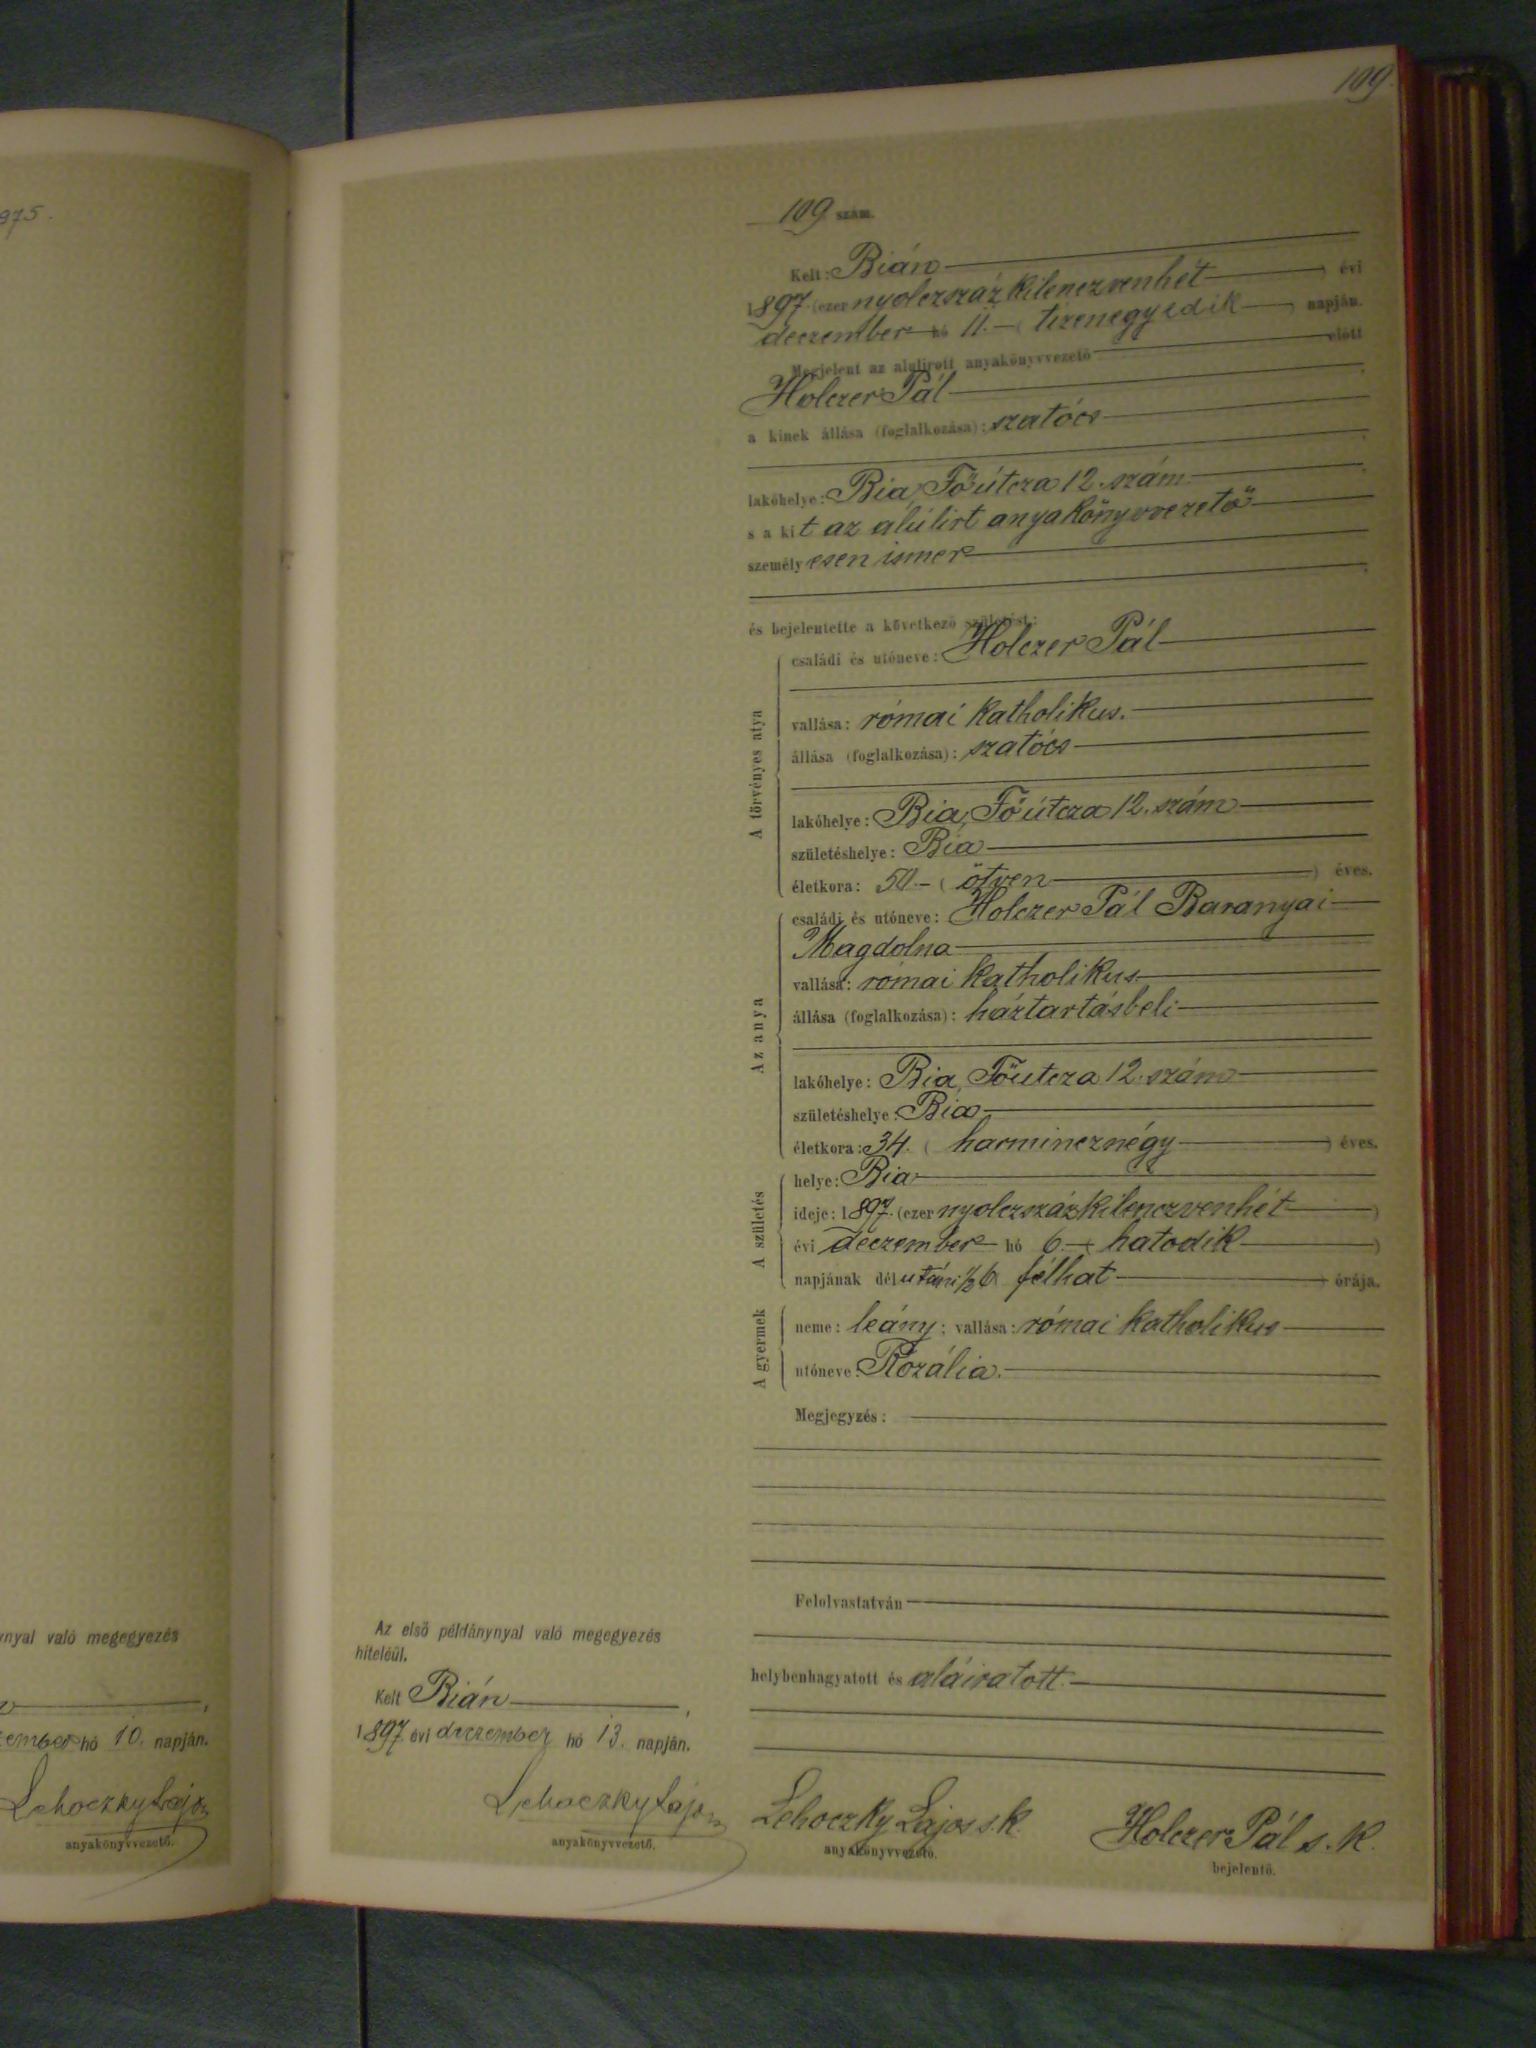 109.
975.
109 szám.
Kelt: Bián
1897. (ezer nyolczszáz kilenczvenhét) évi
deczember hó 11. (tizenegyedik) napján.
Megjelent az alulirott anyakönyvvezető előtt
Holczer Pál
a kinek állása (foglalkozása): szatócs
lakóhelye: Bia, Főútcza 12. szám
s a kit az alúlirt anyakönyvvezető
személyesen ismer
és bejelentette a következő születést:
A törvényes atya
családi és utóneve: Holczer Pál
vallása: római katholikus.
állása (foglalkozása): szatócs
lakóhelye: Bia, Főútcza 12. szám
születéshelye: Bia
életkora: 50. (ötven) éves.
Az anya
családi és utóneve: Holczer Pál Baranyai
Magdolna
vallása: római katholikus
állása (foglalkozása): háztartásbeli
lakóhelye: Bia, Főutcza 12. szám
születéshelye: Bia
életkora: 34. (harmincznégy) éves.
A születés
helye: Bia
ideje: 1897. (ezer nyolczszázkilenczvenhét)
évi deczember hó 6. (hatodik)
napjának délutáni ½6 félhat) órája.
A gyermek
neme: leány; vallása: római katholikus
utóneve: Rozália.
Megjegyzés:
Felolvastatván
helybenhagyatott és aláiratott.
Lehoczky Lajos s.k.
anyakönyvvezető.
Holczer Pál s. k.
bejelentő.
Az első példánynyal való megegyezés
hiteléül.
Kelt Bián,
1897. évi deczember hó 13. napján.
Lehoczky Lajos
anyakönyvvezető.
nynyal való megegyezés
zember hó 10. napján.
Lehoczky Lajos
anyakönyvvezető.